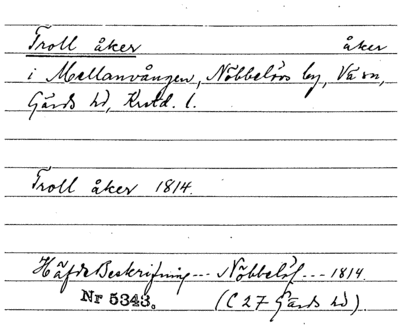 Troll åker åker
i Mellanvången, Nöbbelövs by, Vä sn,
Gärds hd, Krstd. l.
Troll åker 1814.
Häfde Beskrifning --- Nöbbelöf --- 1814.
Nr 5343. (C 27 Gärds hd).